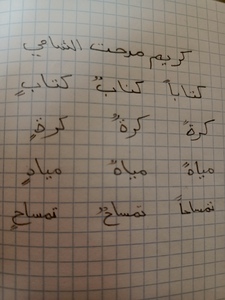 كريم مدحت الشامي
كتاباً كتابٌ كتابٍ
كرةً كرةٌ كرةٍ
مياهً مياهٌ مياهٍ
تمساحاً تمساحٌ تمساحٍ